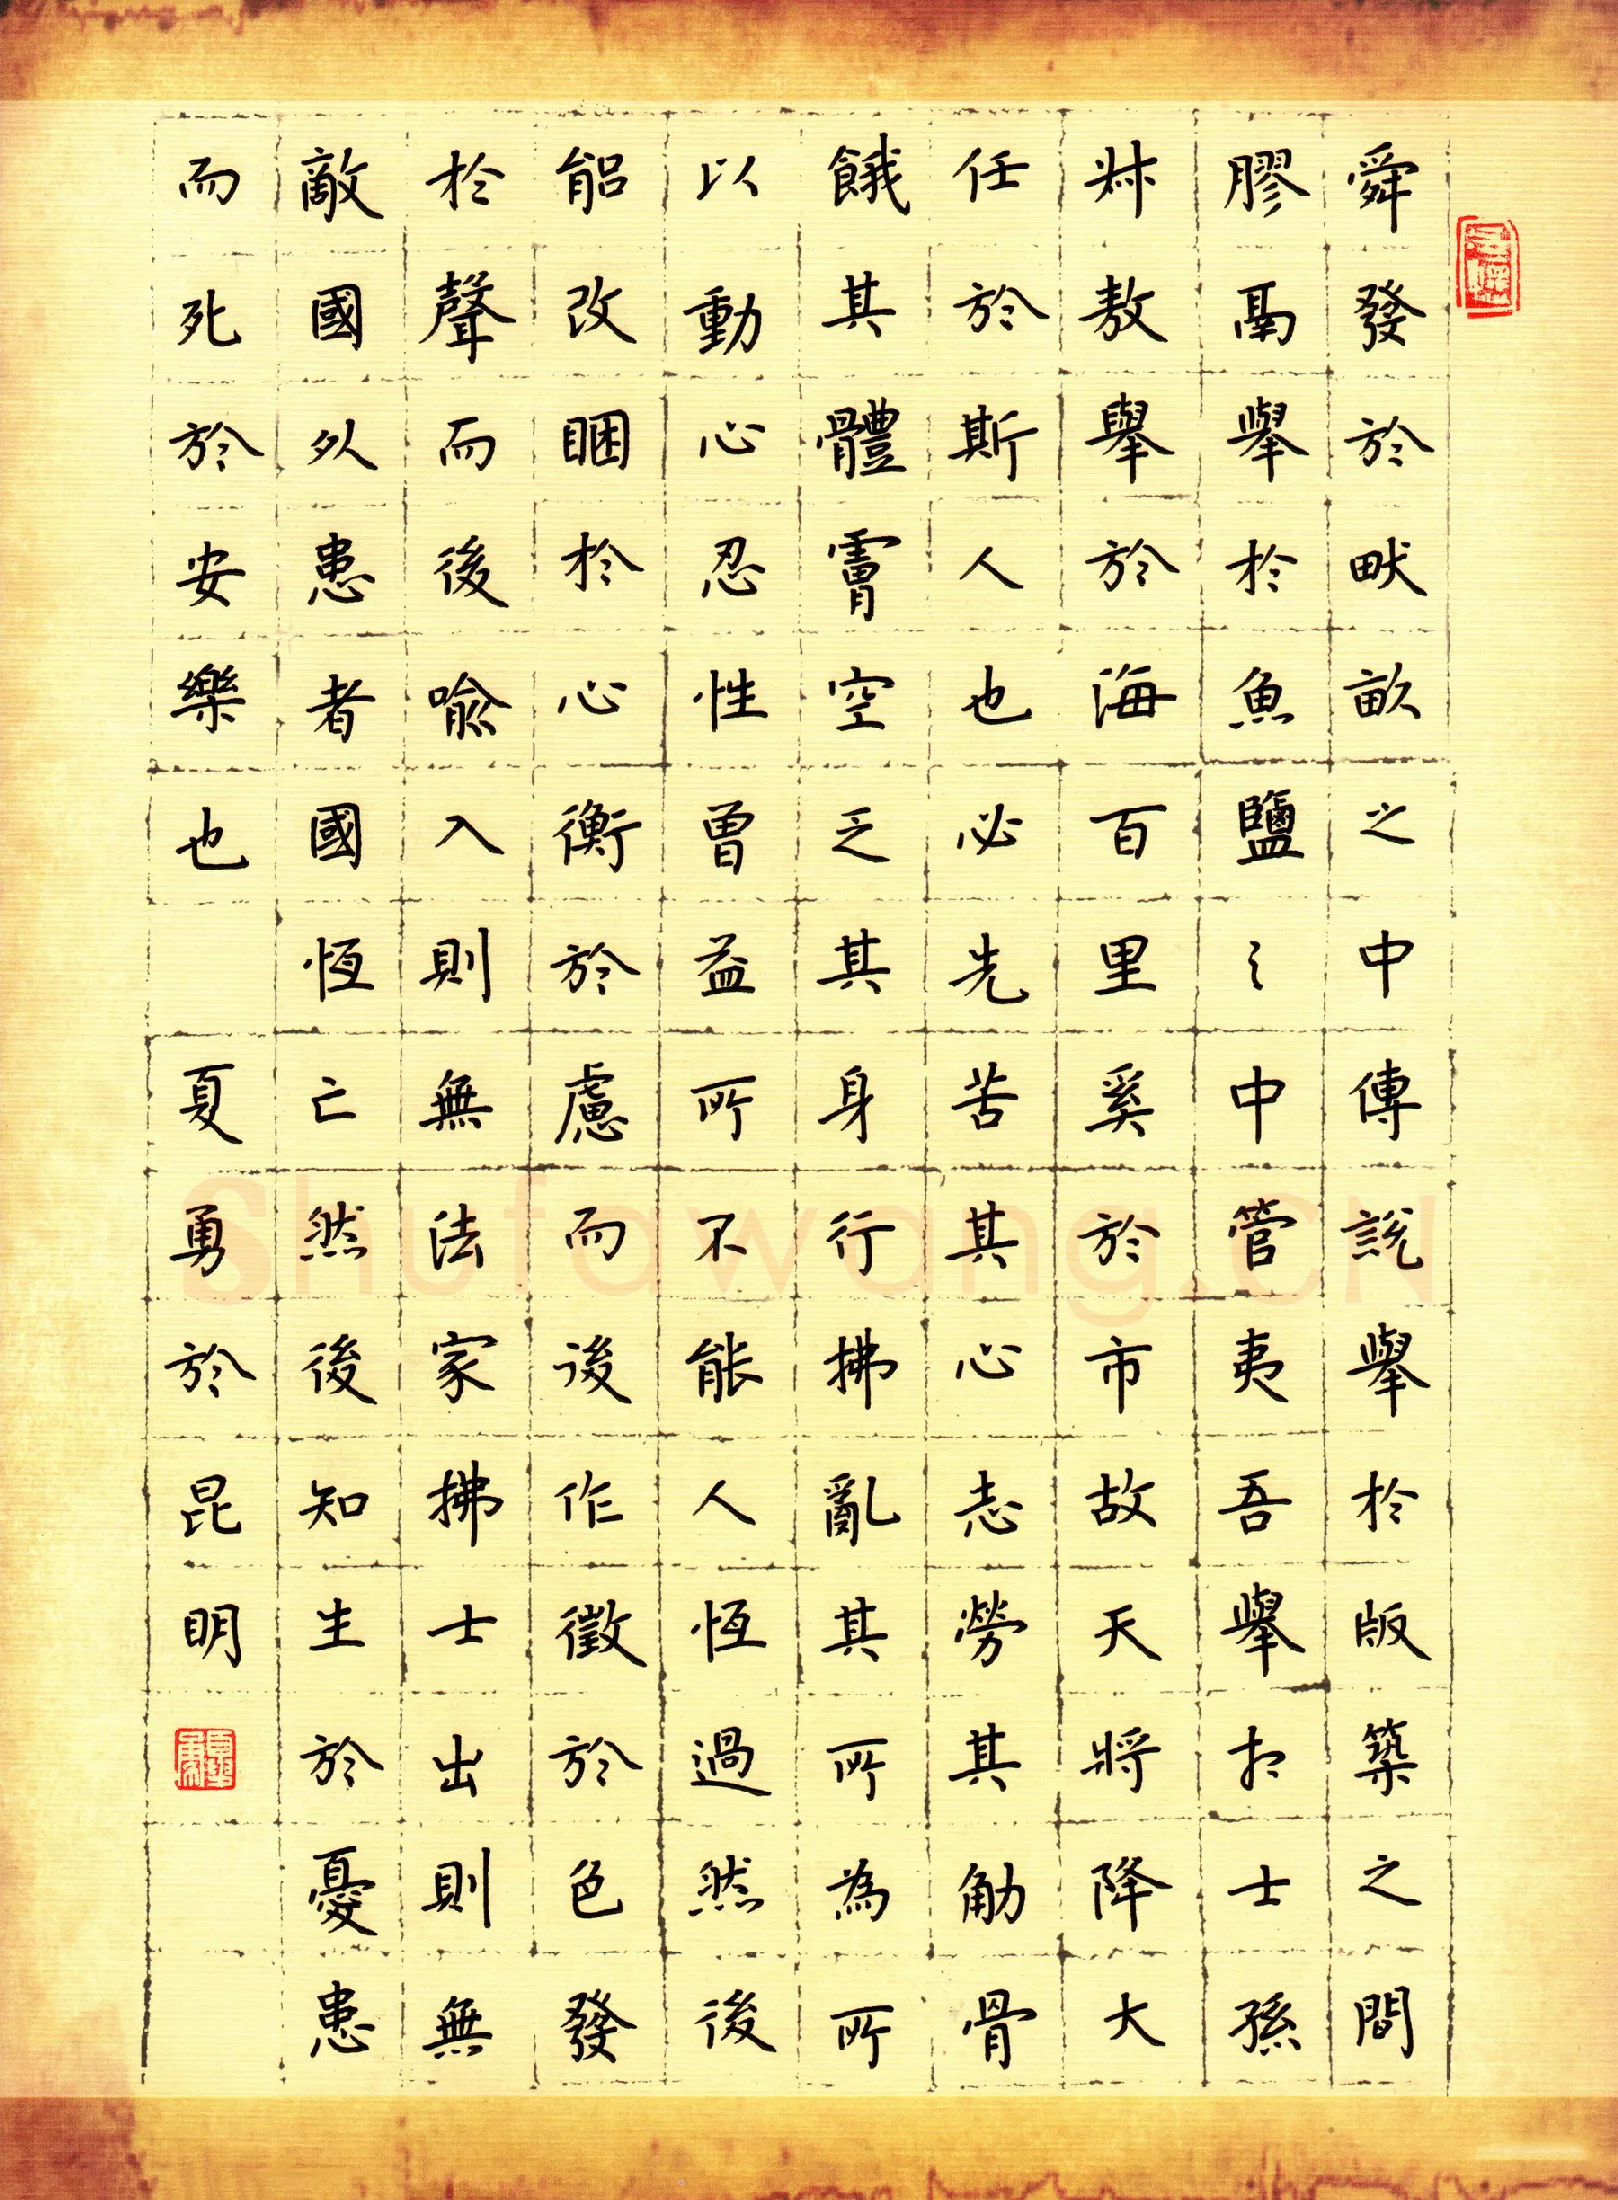 舜發於畎畝之中傅說舉於版築之間
膠鬲舉於魚鹽之中管夷吾舉於士孫
叔敖舉於海百里奚於市故天將降大
任於斯人也必先苦其心志勞其筋骨
餓其體膚空乏其身行拂亂其所為所
以動心忍性曾益所不能人恆過然後
能改困於心衡於慮而後作徵於色發
於聲而後喻入則無法家拂士出則無
敵國外患者國恆亡然後知生於憂患
而死於安樂也 夏勇於昆明
Shufawang.CN